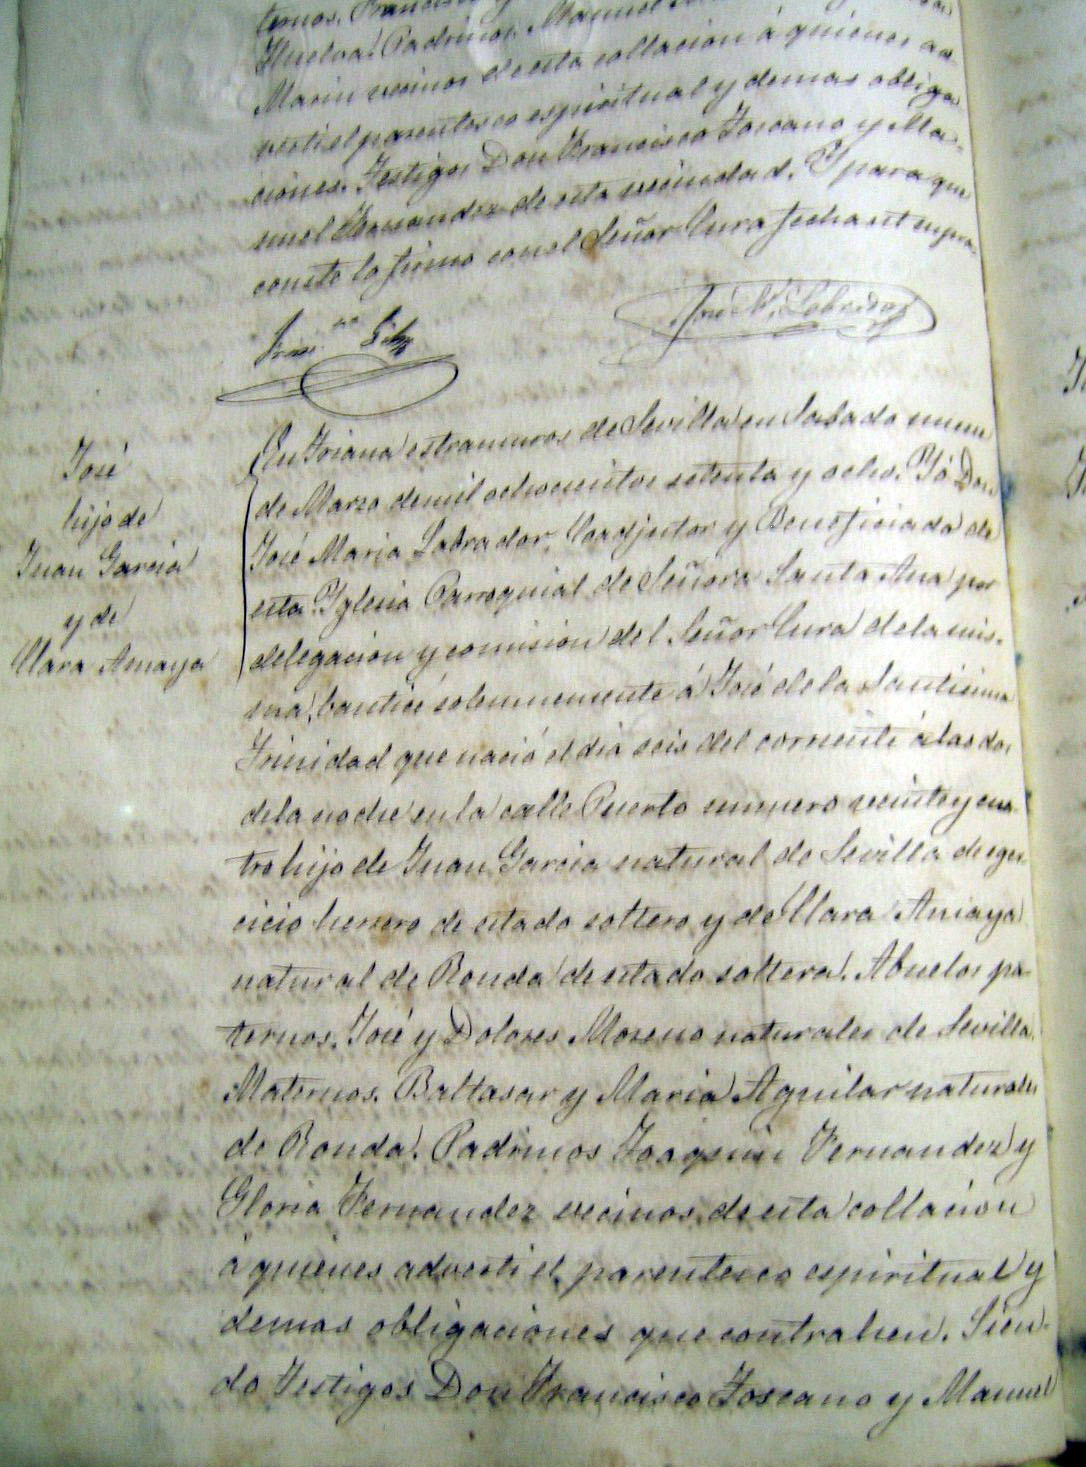 ternos. Francisco y
Huelva. Padrinos. Manuel
Marin vecinos de esta collacion á quienes ad-
verti el parentesco espiritual y demas obliga
ciones. Testigos Don Francisco Toscano y Ma-
nuel Fernandez de esta vecindad. Y para que
conste lo firmo con el Señor Cura fecha ut supra.
José M. Labrador
José
hijo de
Juan Garcia
y de
Clara Amaya
En Triana estramuros de Sevilla en Sabado nueve
de Marzo de mil ochocientos setenta y ocho. Yó Don
José Maria Labrador, Coadjutor y Beneficiado de
esta Yglesia Parroquial de Señora Santa Ana por
delegacion y comision del Señor Cura de la mis-
ma, bauticé solemnemente á José de la Santisima
Trinidad que nació el dia seis del corriente á las dos
de la noche en la calle Puerto numero veinte y cua
tro hijo de Juan Garcia natural de Sevilla de eger
cicio herrero de estado soltero y de Clara Amaya
natural de Ronda de estado soltera. Abuelos pa-
ternos. José y Dolores Moreno naturales de Sevilla.
Maternos. Baltasar y Maria Aguilar naturales
de Ronda. Padrinos Joaquin Fernandez y
Gloria Fernandez vecinos de esta collacion
á quienes adverti el parentesco espiritual y
demas obligaciones que contrahen. Sien-
do Testigos Don Francisco Toscano y Manuel